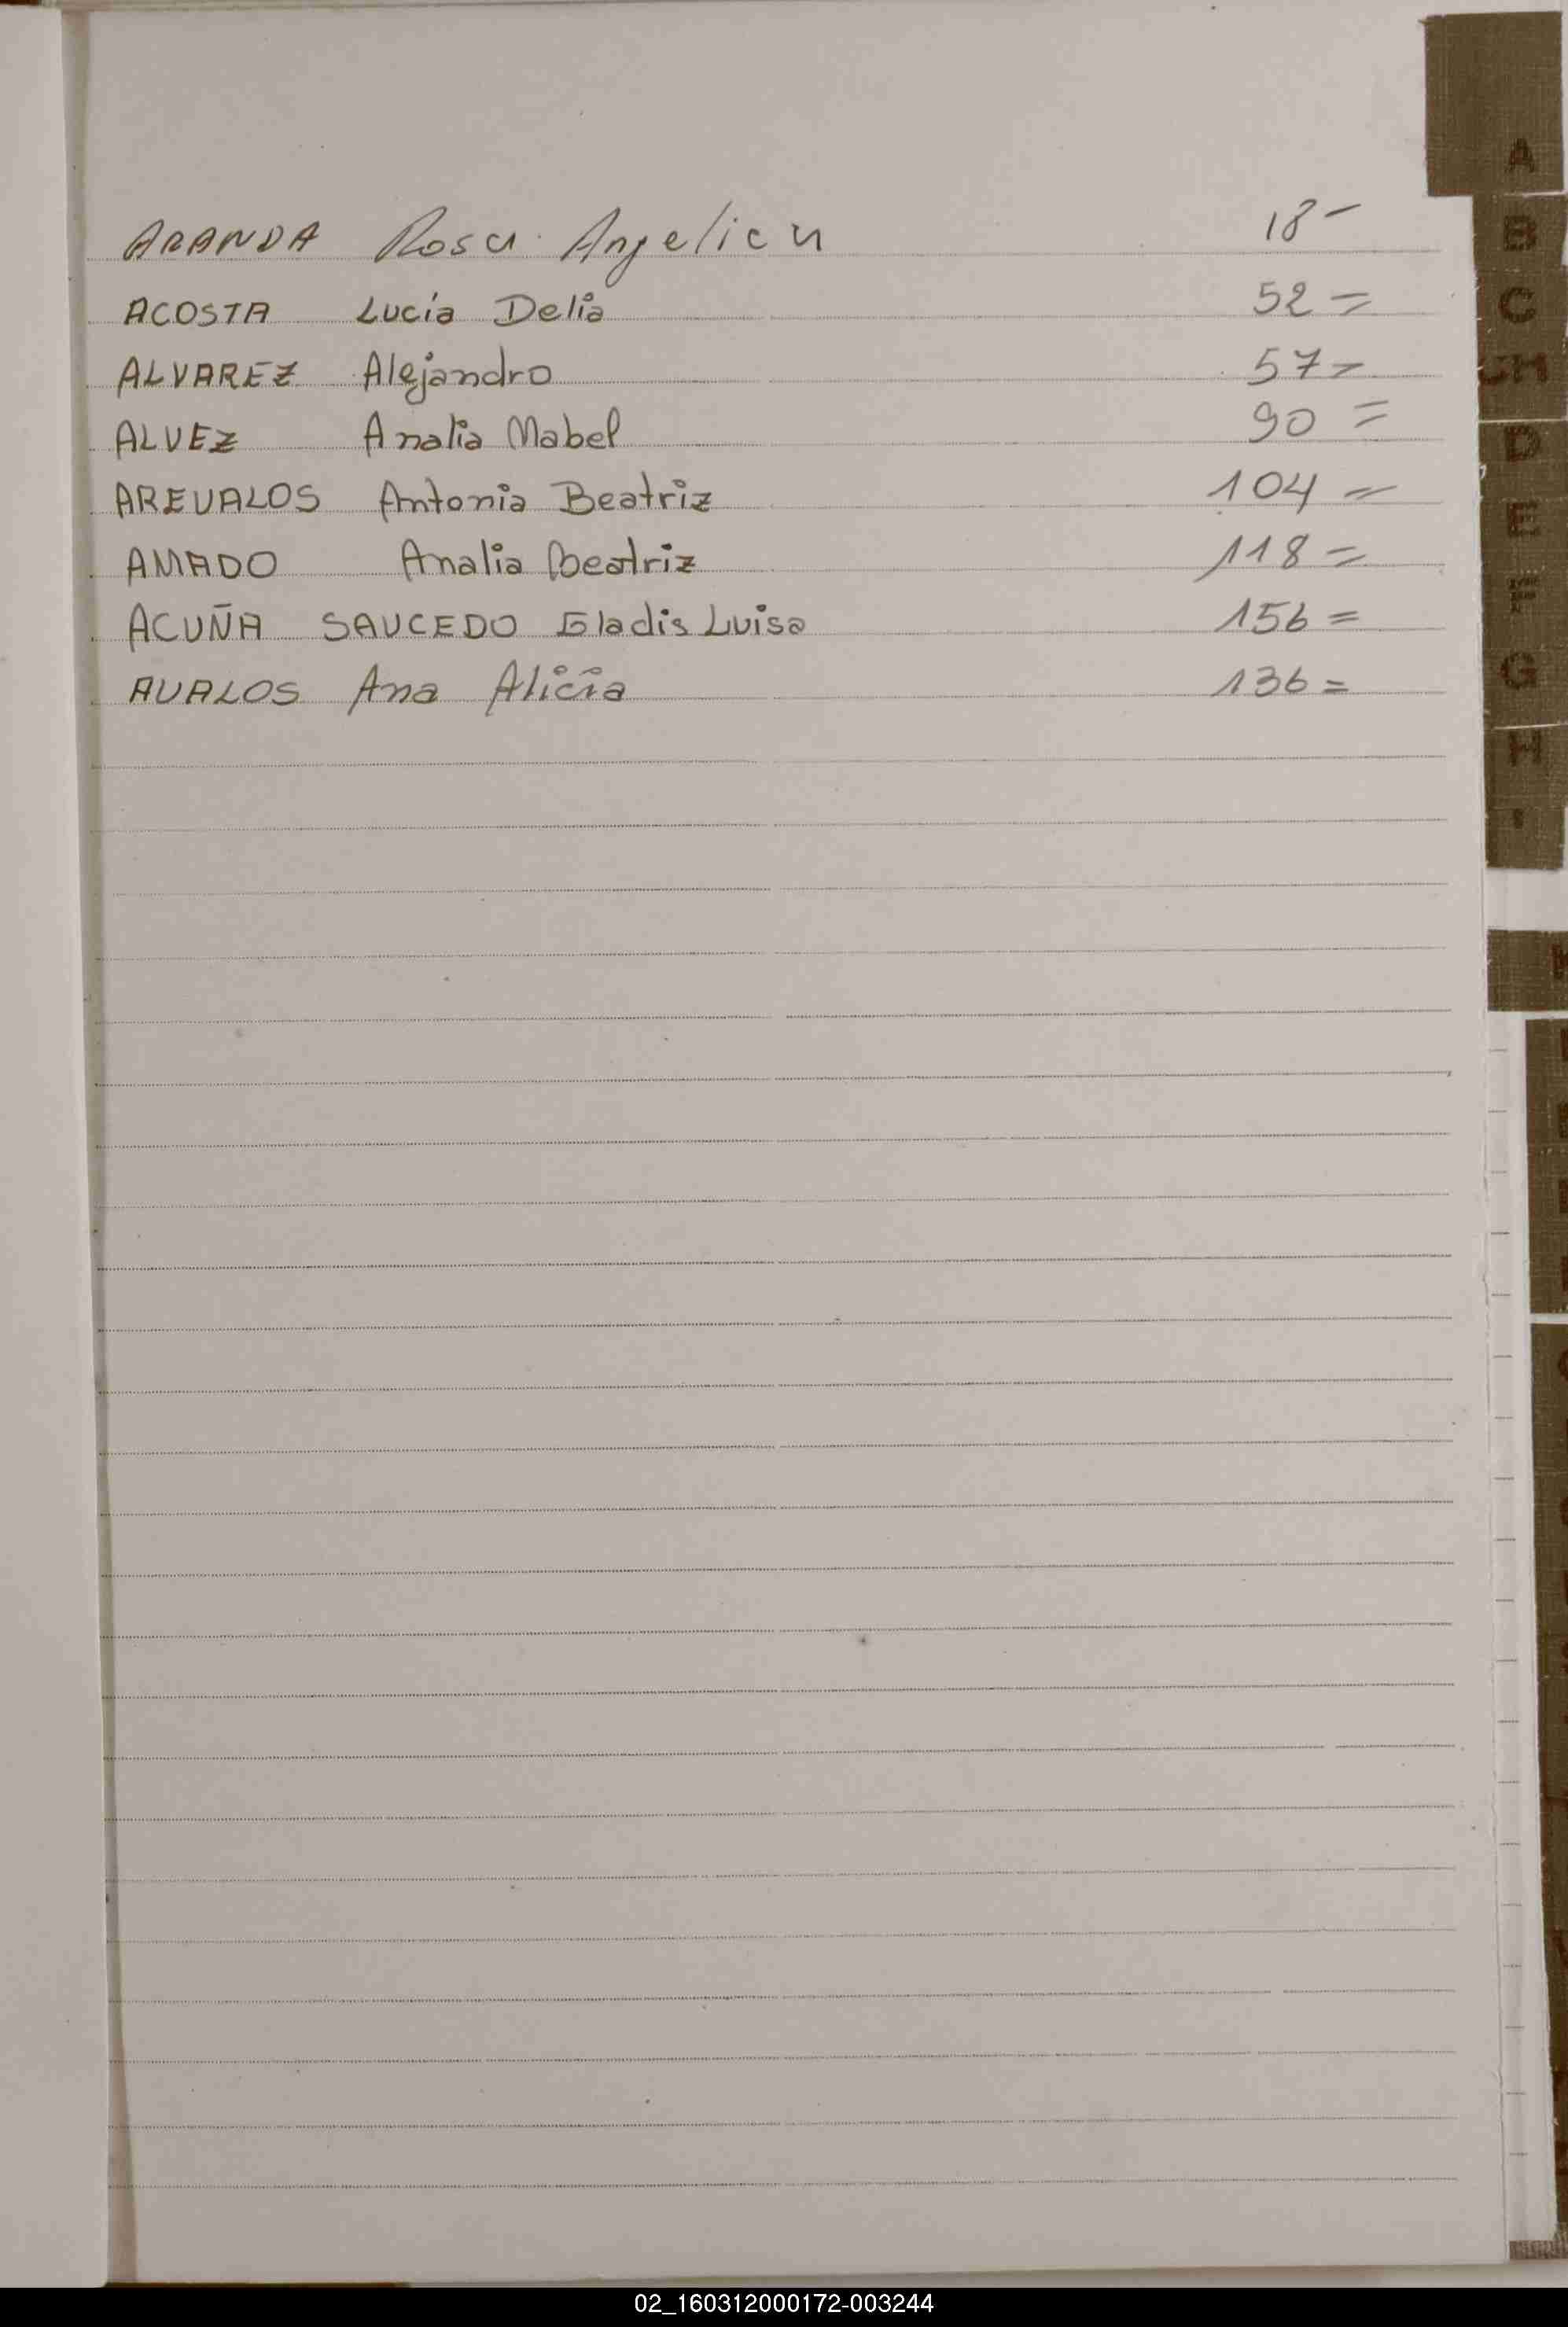 ARANDA Rosa Angelica 18-
ACOSTA Lucía Delia 52=
ALVAREZ Alejandro 57=
ALVEZ Analia Mabel 90=
AREVALOS Antonia Beatriz 104=
AMADO Analia Beatriz 118=
ACUÑA SAUCEDO Gladis Luisa 156=
AVALOS Ana Alicia 136=
A
B
C
CH
D
E
F
G
H
02_160312000172-003244